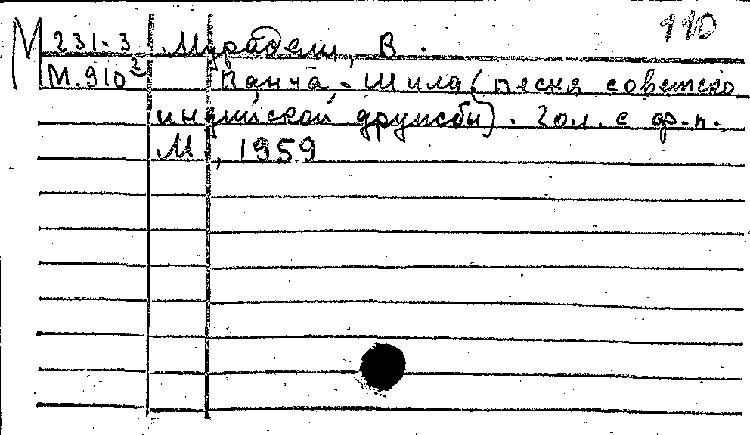 110
М 231-3 Мурадели, В.
М.910² Панча-Шила (песня советско
индийской дружбы). Гол. с ф-п.
М, 1959